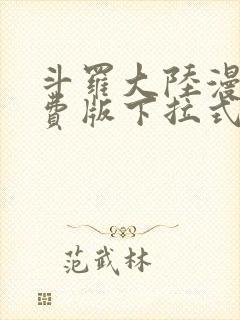 斗羅大陸漫
費版下拉式
范武林